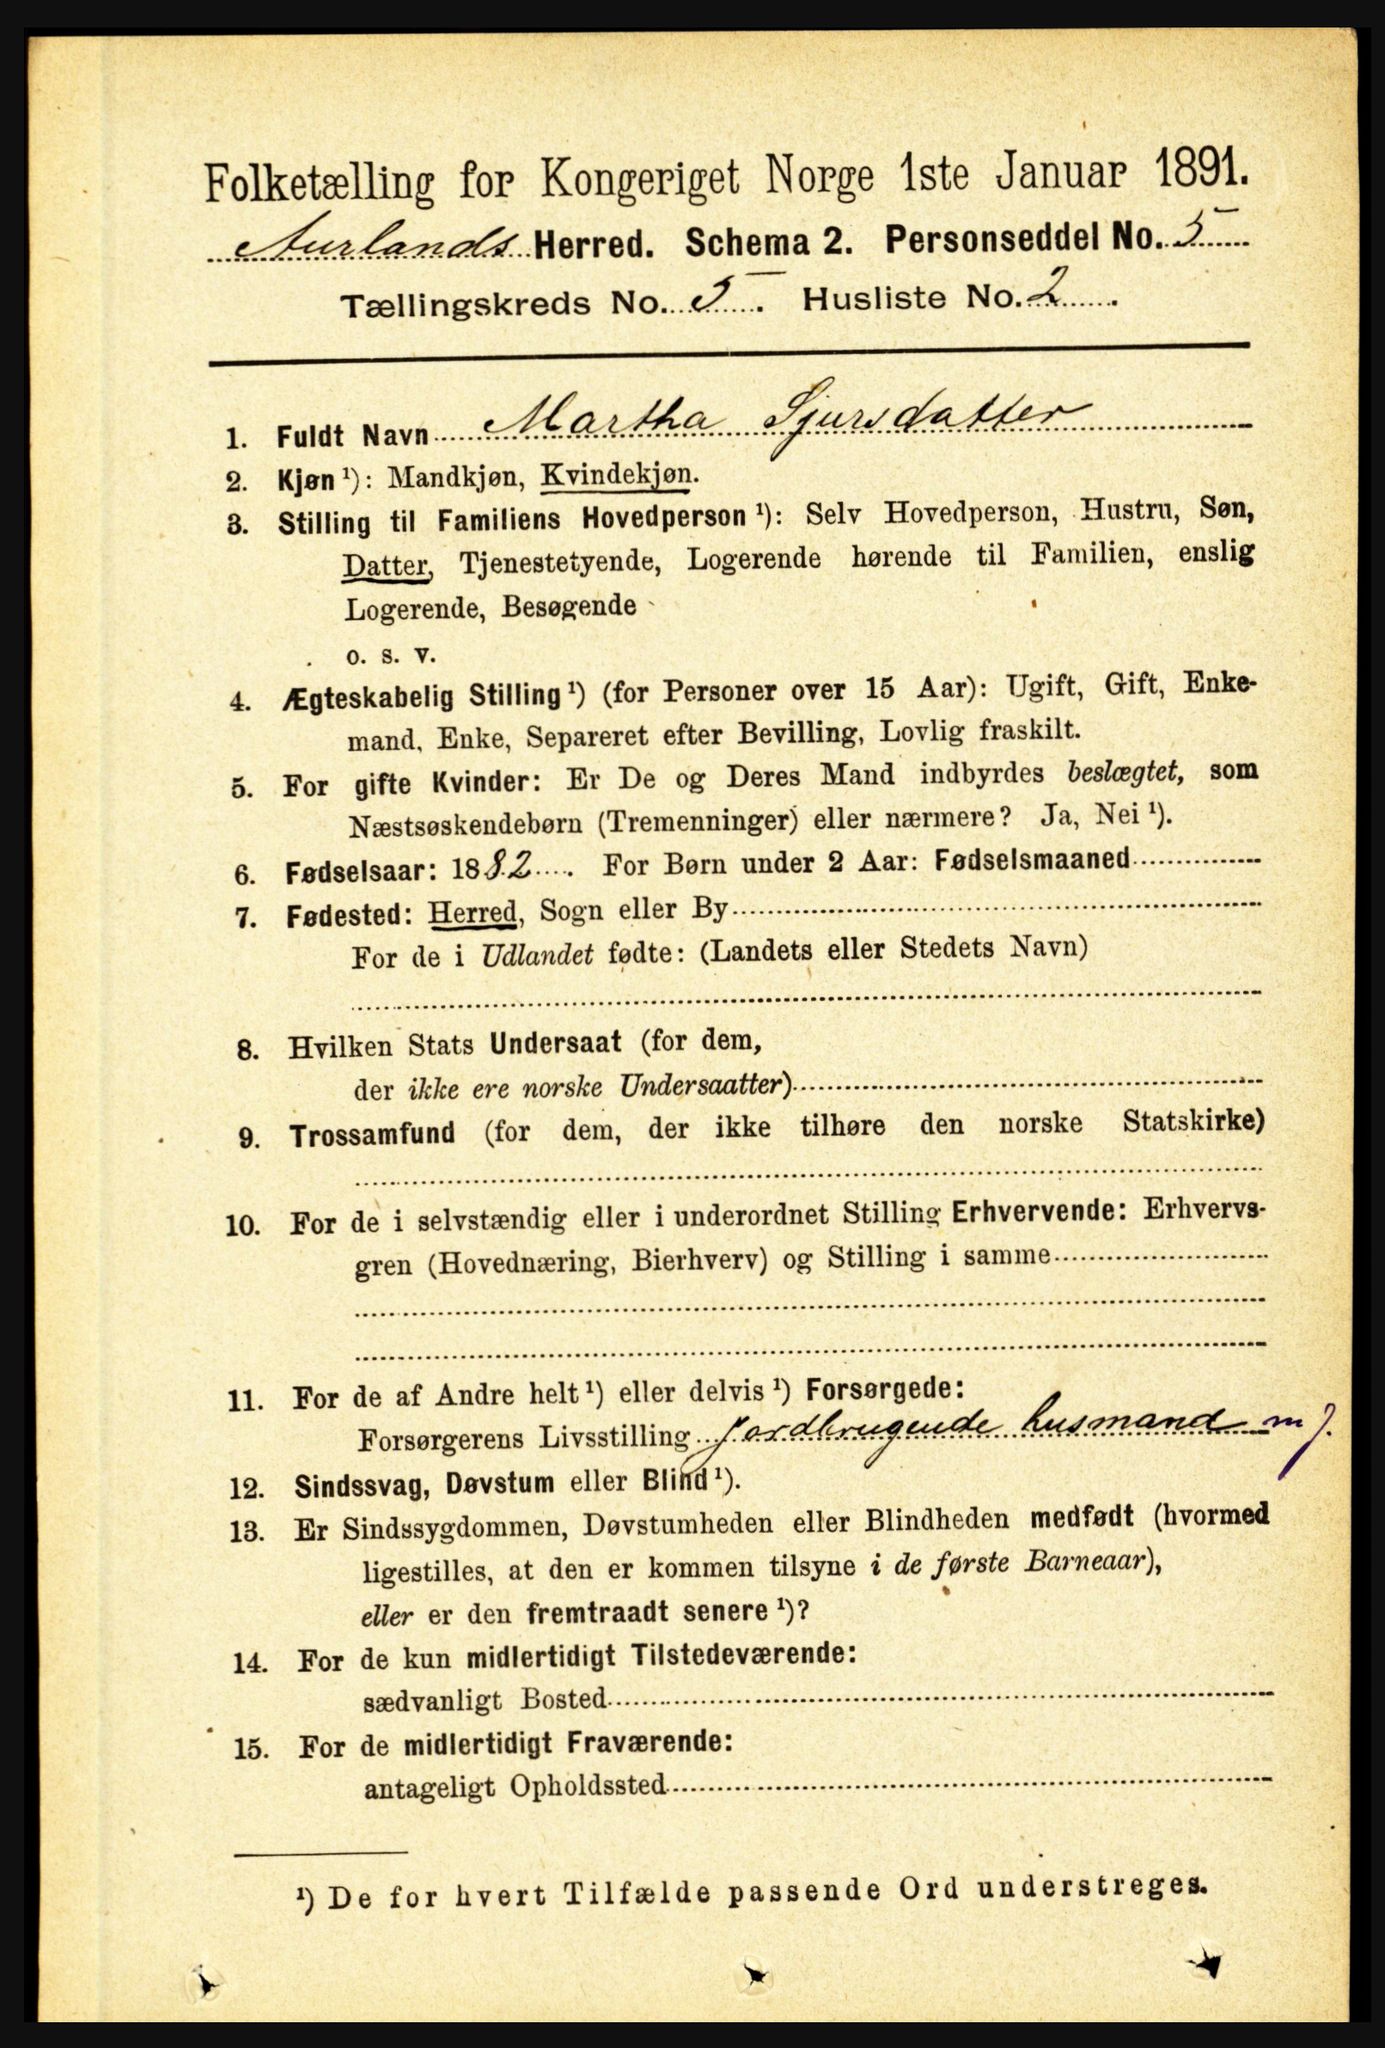 Folketælling for Kongeriget Norge 1ste Januar 1891.
Aurlands Herred. Schema 2. Personseddel No. 5
Tællingskreds No. 5. Husliste No. 2.
1. Fuldt Navn Martha Sjursdatter
2. Kjøn ¹): Mandkjøn, Kvindekjøn.
3. Stilling til Familiens Hovedperson ¹): Selv Hovedperson, Hustru, Søn,
Datter, Tjenestetyende, Logerende hørende til Familien, enslig
Logerende, Besøgende
o. s. v.
4. Ægteskabelig Stilling ¹) (for Personer over 15 Aar): Ugift, Gift, Enke-
mand, Enke, Separeret efter Bevilling, Lovlig fraskilt.
5. For gifte Kvinder: Er De og Deres Mand indbyrdes beslægtet, som
Næstsøskendebørn (Tremenninger) eller nærmere? Ja, Nei ¹).
6. Fødselsaar: 1882. For Børn under 2 Aar: Fødselsmaaned
7. Fødested: Herred, Sogn eller By
For de i Udlandet fødte: (Landets eller Stedets Navn)
8. Hvilken Stats Undersaat (for dem,
der ikke ere norske Undersaatter)
9. Trossamfund (for dem, der ikke tilhøre den norske Statskirke)
10. For de i selvstændig eller i underordnet Stilling Erhvervende: Erhvervs-
gren (Hovednæring, Bierhverv) og Stilling i samme
11. For de af Andre helt ¹) eller delvis ¹) Forsørgede:
Forsørgerens Livsstilling Jordbrugende husmand m J.
12. Sindssvag, Døvstum eller Blind ¹).
13. Er Sindssygdommen, Døvstumheden eller Blindheden medfødt (hvormed
ligestilles, at den er kommen tilsyne i de første Barneaar),
eller er den fremtraadt senere ¹)?
14. For de kun midlertidigt Tilstedeværende:
sædvanligt Bosted
15. For de midlertidigt Fraværende:
antageligt Opholdssted
¹) De for hvert Tilfælde passende Ord understreges.